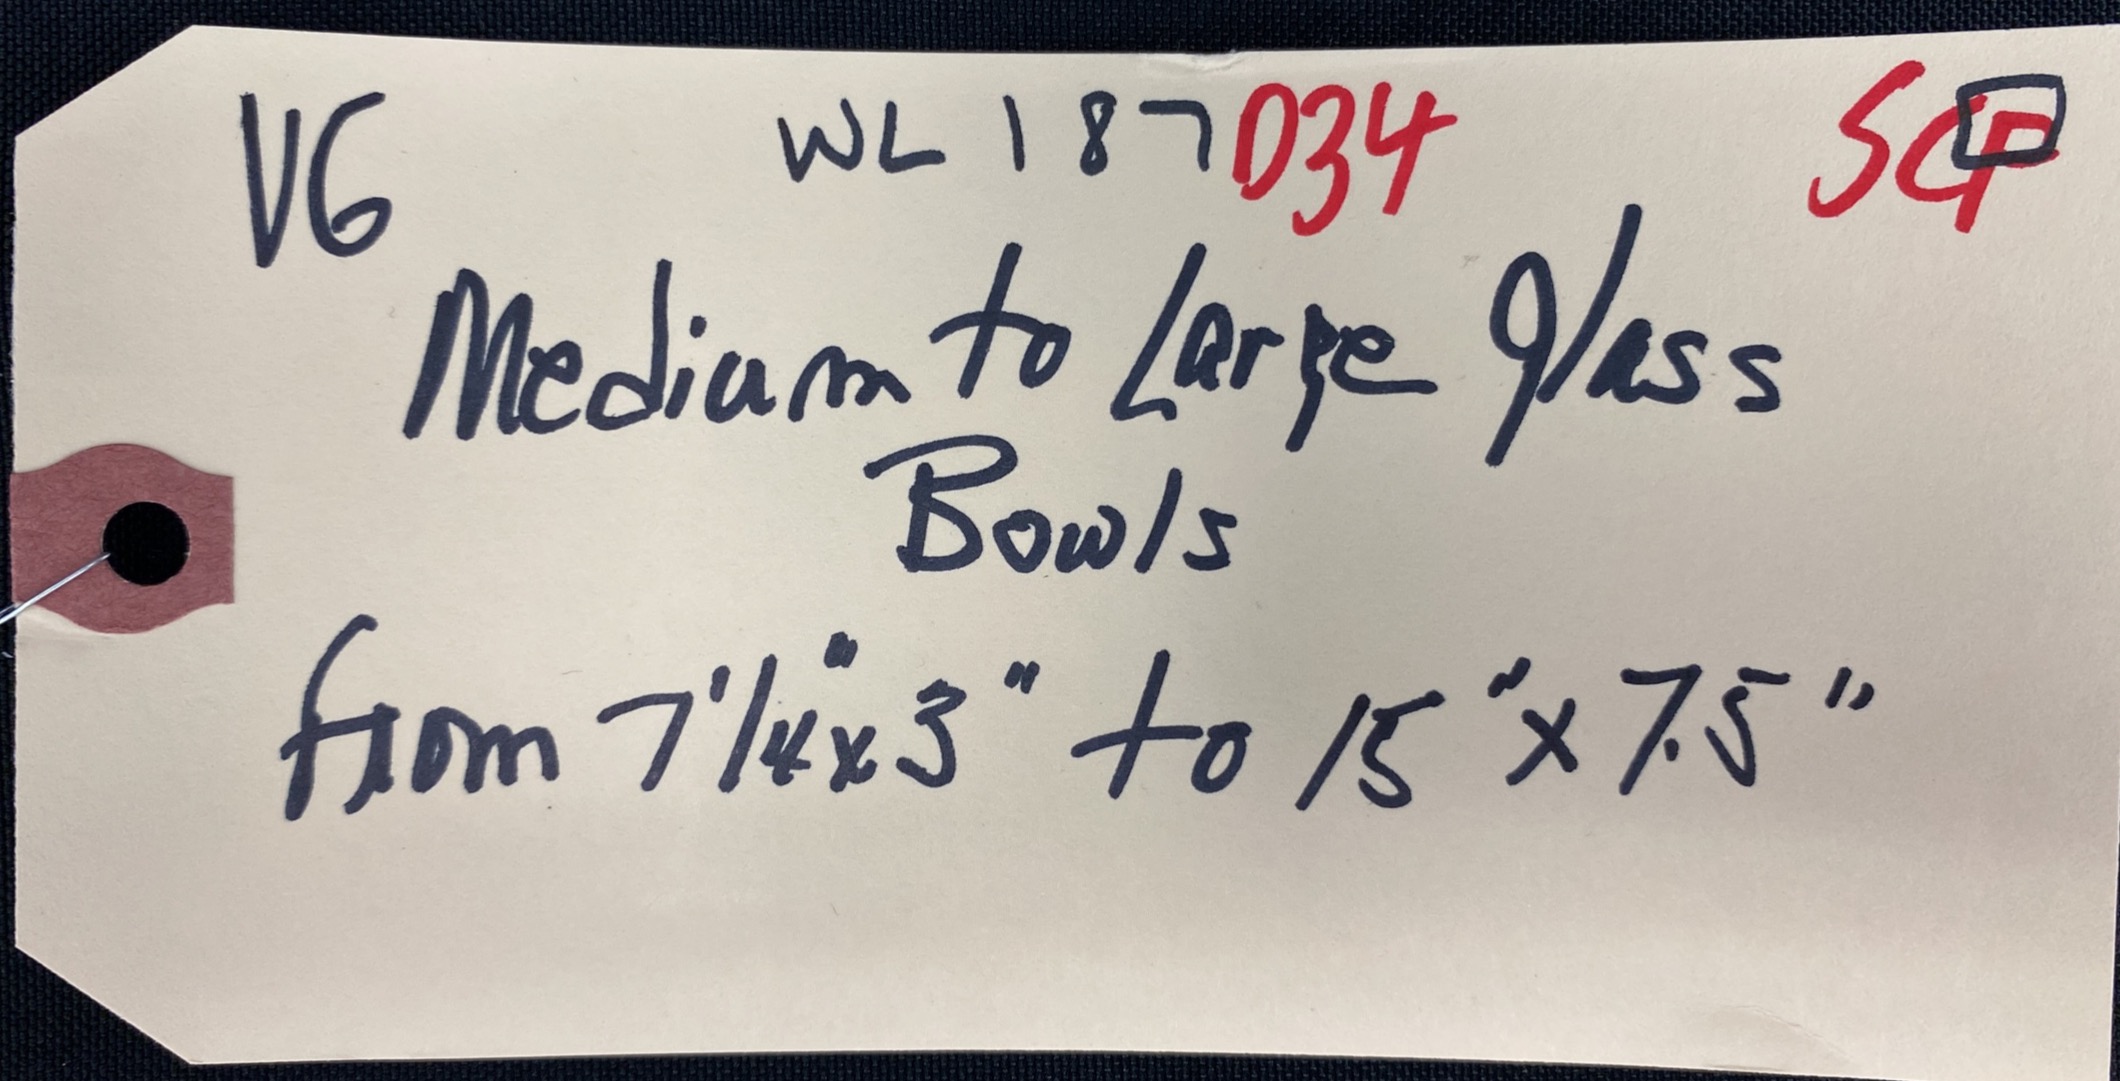 V6 WL 187 D34 SGF
Medium to Large glass
Bowls
from 7 1/4" x 3" to 15" x 7.5"